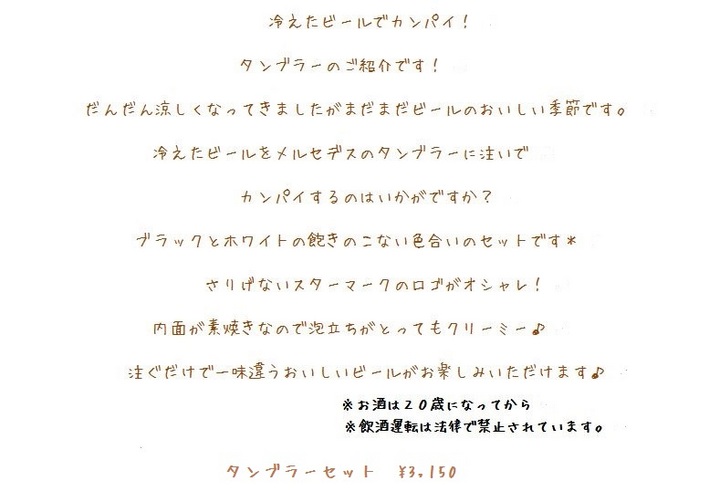 冷えたビールでカンパイ！
タンブラーのご紹介です！
だんだん涼しくなってきましたがまだまだビールのおいしい季節です。
冷えたビールをメルセデスのタンブラーに注いで
カンパイするのはいかがですか？
ブラックとホワイトの飽きのこない色合いのセットです＊
さりげないスターマークのロゴがオシャレ！
内面が素焼きなので泡立ちがとってもクリーミー♪
注ぐだけで一味違うおいしいビールがお楽しみいただけます♪
※お酒は２０歳になってから
※飲酒運転は法律で禁止されています。
タンブラーセット　¥3,150